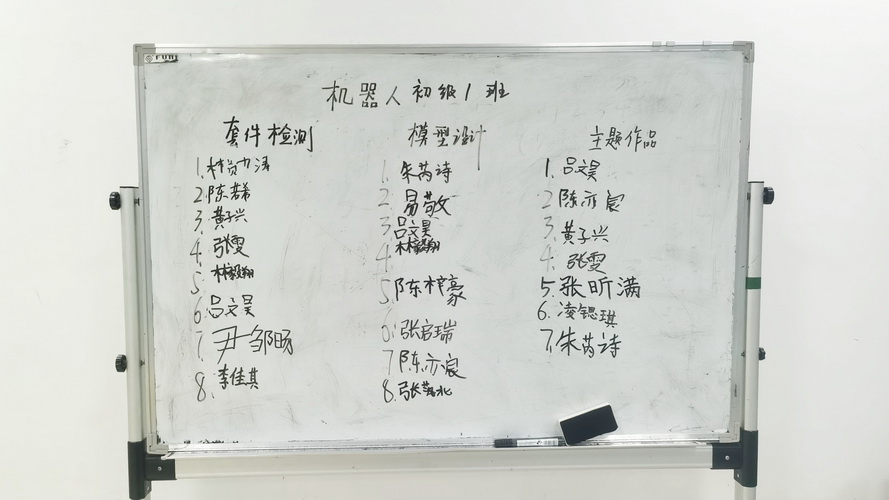 机器人初级1班
套件检测
1.林贤力涛
2.陈若希
3.黄子兴
4.张雯
5.林毅翔
6.吕文昊
7.尹邹旸
8.李佳其
模型设计
1.朱芮诗
2.易敬
3.吕文昊
4.林毅翔
5.陈梓豪
6.张启瑞
7.陈亦宸
8.张芸北
主题作品
1.吕文昊
2.陈亦宸
3.黄子兴
4.张雯
5.张昕满
6.凌锶琪
7.朱芮诗